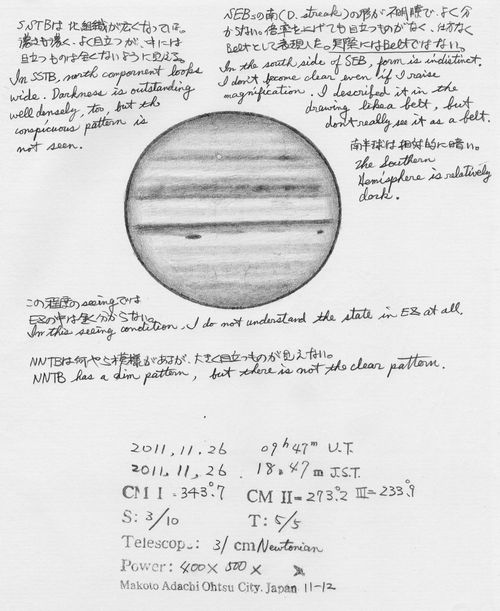 S.STBは北組織が広くなっている。
濃さも濃く、よく目立つが、すじには
目立つものは全くないように見える。
In SSTB, north component looks
wide. Darkness is outstanding
well densely, too, but the
conspicuous pattern is
not seen.
SEBsの南(D. streak)の形が不明瞭で、よく分
からない。倍率を上げても目立つものがなく、仕方なく
Beltとして表現した。実際にはBeltではない。
In the south side of SEB, form is indistinct.
I don't become clear even if I raise
magnification. I described it in the
drawing like a belt, but
don't really see it as a belt.
南半球は相対的に暗い。
The Southern
Hemisphere is relatively
dark.
この程度のseeingでは
EZの中は全く分からない。
In this seeing condition, I do not understand the state in EZ at all.
NNTBは何やら模様があるが、大きく目立つものが見えない。
NNTB has a dim pattern, but there is not the clear pattern.
2011, 11, 26 09h 47m U.T.
2011, 11, 26 18h 47m J.S.T.
CM I = 343.°7 CM II = 273.°2 III = 233.°9
S: 3/10 T: 5/5
Telescope: 31 cm Newtonian
Power: 400× 500×
Makoto Adachi Ohtsu City. Japan 11-12